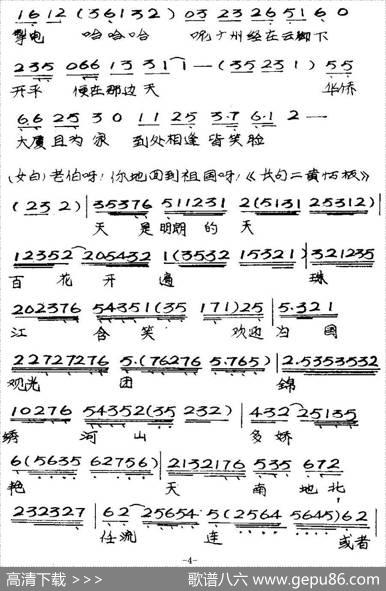 1612 (36132) 03 2326 51 6 0
掣电 哈哈哈 呢广州经在云脚下
235 066 13 311— (35 231) 55
开平 便在那边天 华侨
66 25 3 0 11 25 3·7 6·1 2 —
大厦且为家 到处相逢皆笑脸
(女白)老伯呀!你地回到祖国呀!《长句二黄慢板》
(232) | 35376 511231 2(5131 25312) |
天是明朗的天
12352 205432 1(3532 15321) | 321235
百花开遍 珠
202376 54351(35 171)25 | 5·321
江含笑 欢迎归国
22727276 5·(76276 5·765) | 2·5353532
观光团 锦
10276 54352(35 232) | 432 25135
绣河山 多娇
6(5635 62756) | 2132176 535 672
艳 天南地北
232327 | 62 25654 5(2564 5645)62 |
任流连 或者
-4-
高清下载 >>> 歌谱八六 www.gepu86.com